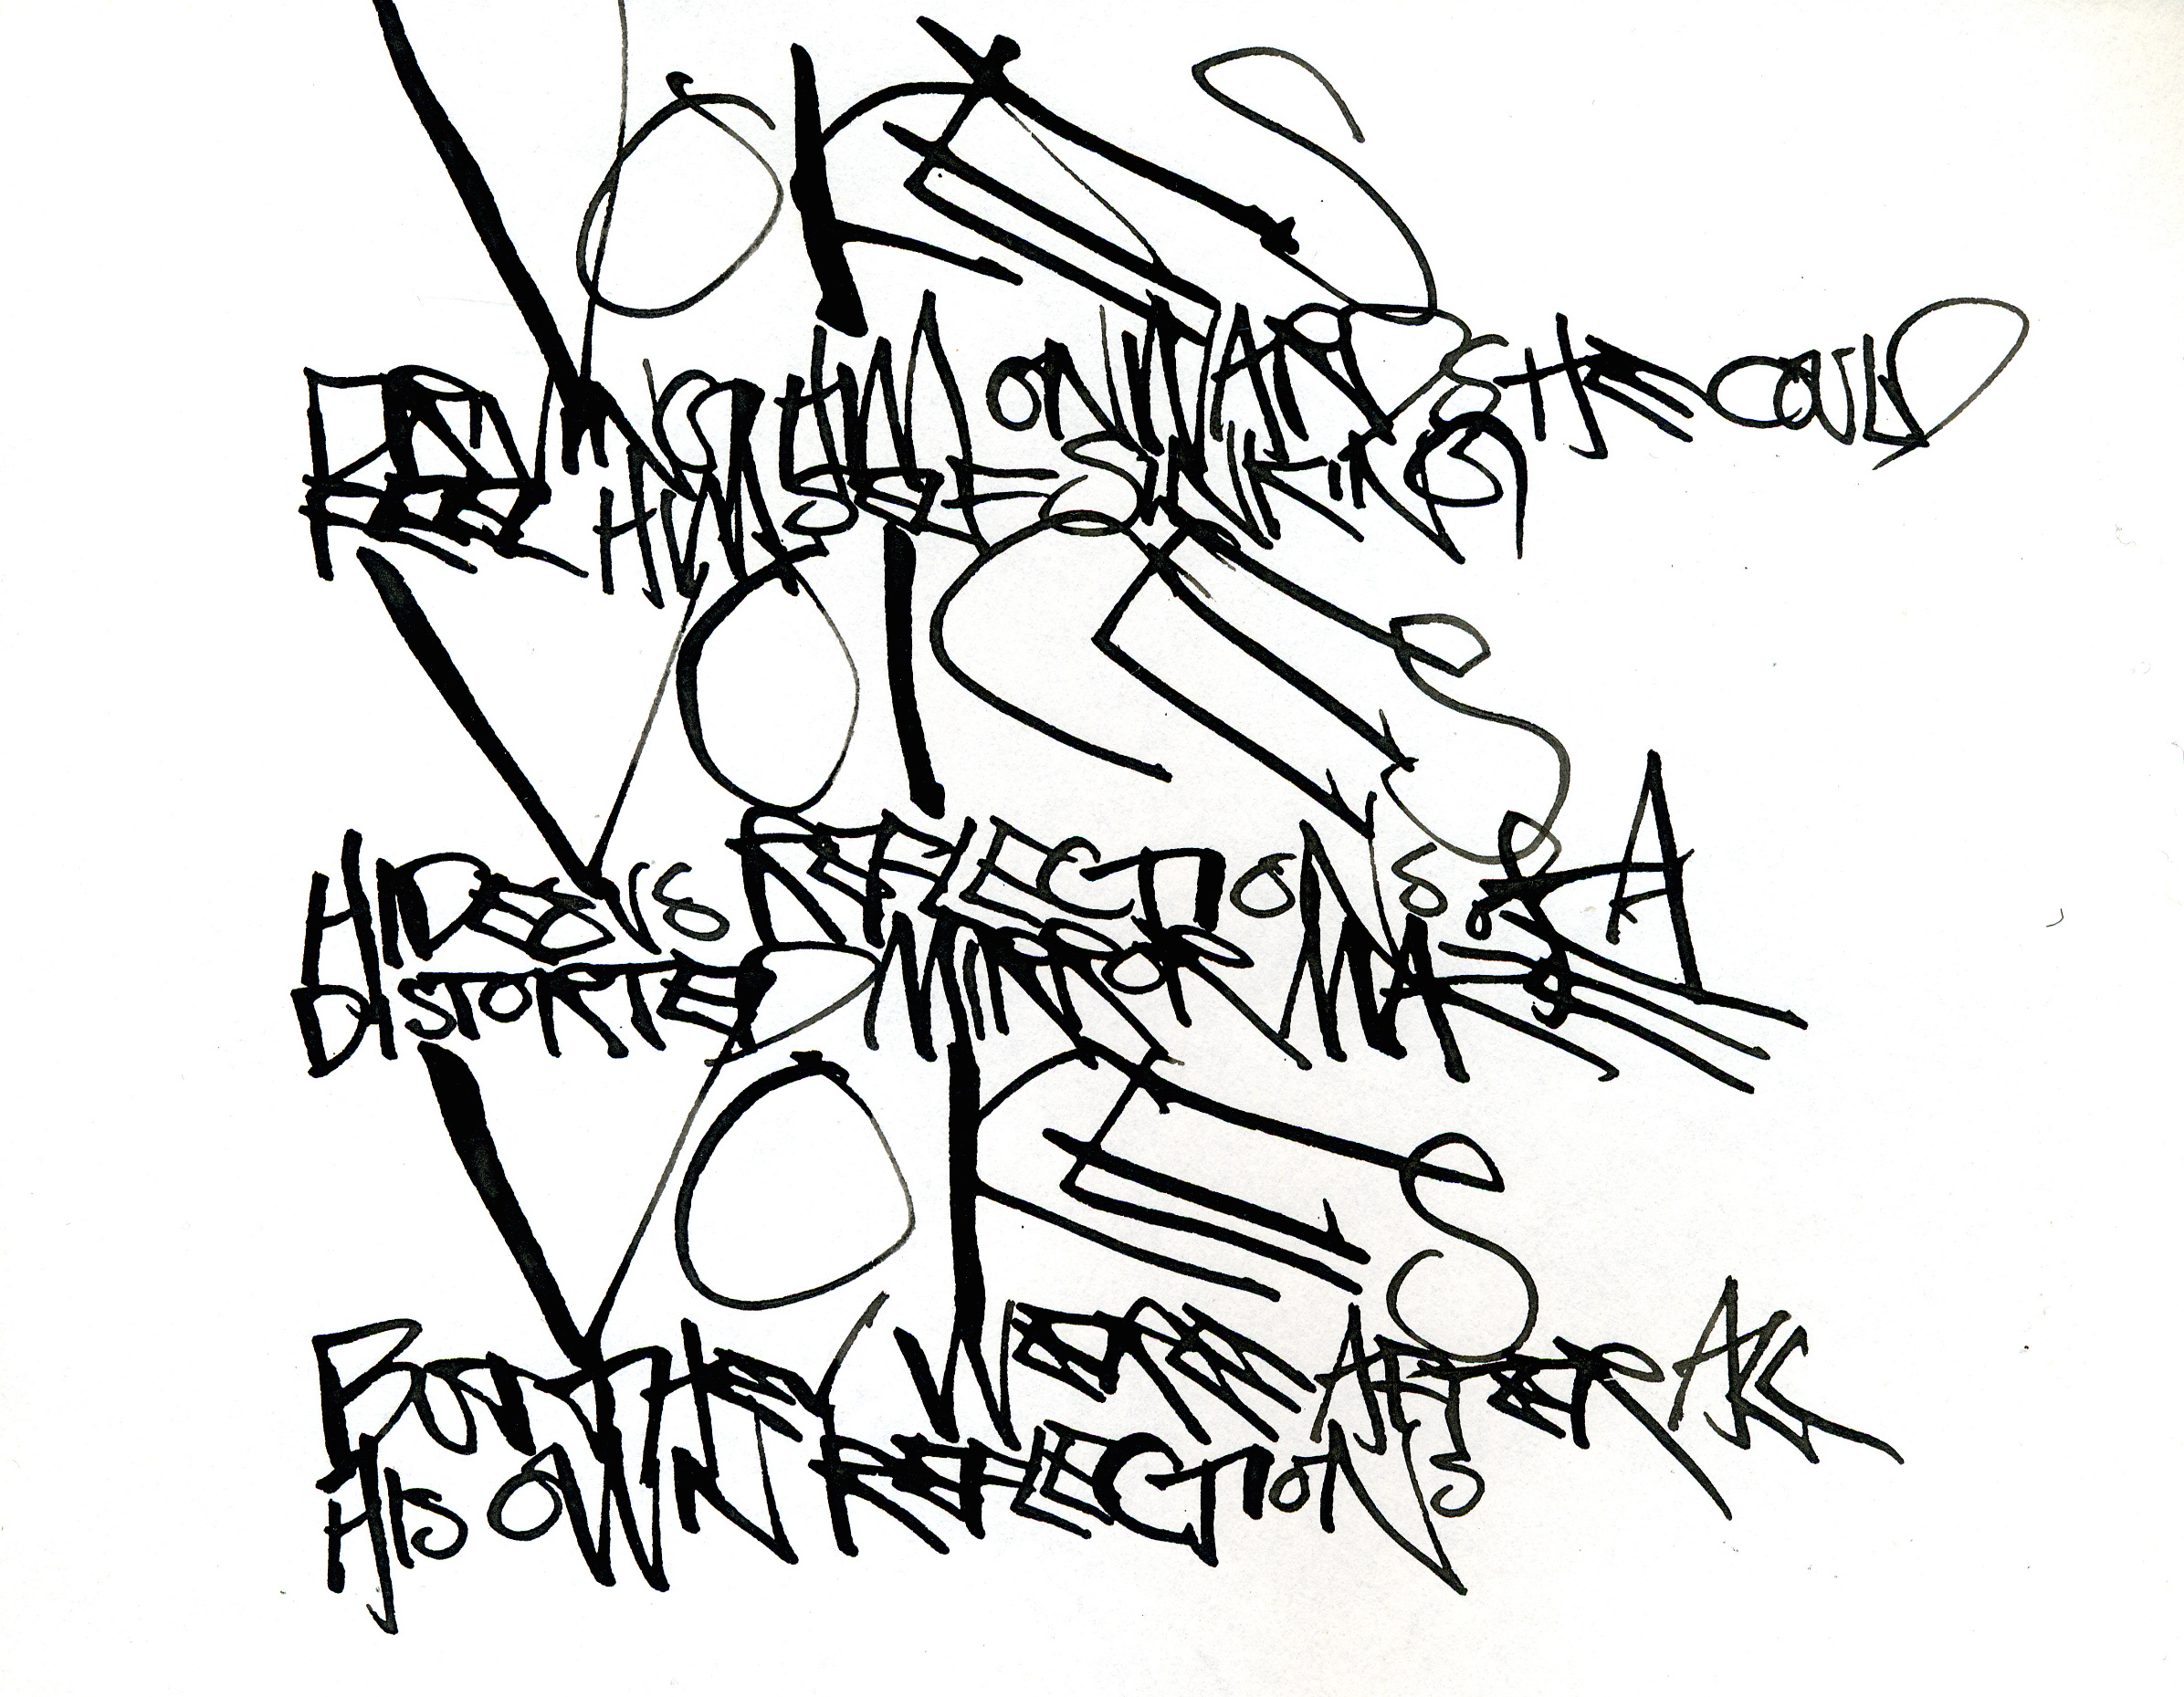 VOICES
PUSHING HIM ONWARDS HE COULD
FEEL HIMSELF SINKING
VOICES
HIDEOUS REFLECTIONS OF A
DISTORTED MIRROR MAZE
VOICES
BUT THEY WERE AFTER ALL
HIS OWN REFLECTIONS